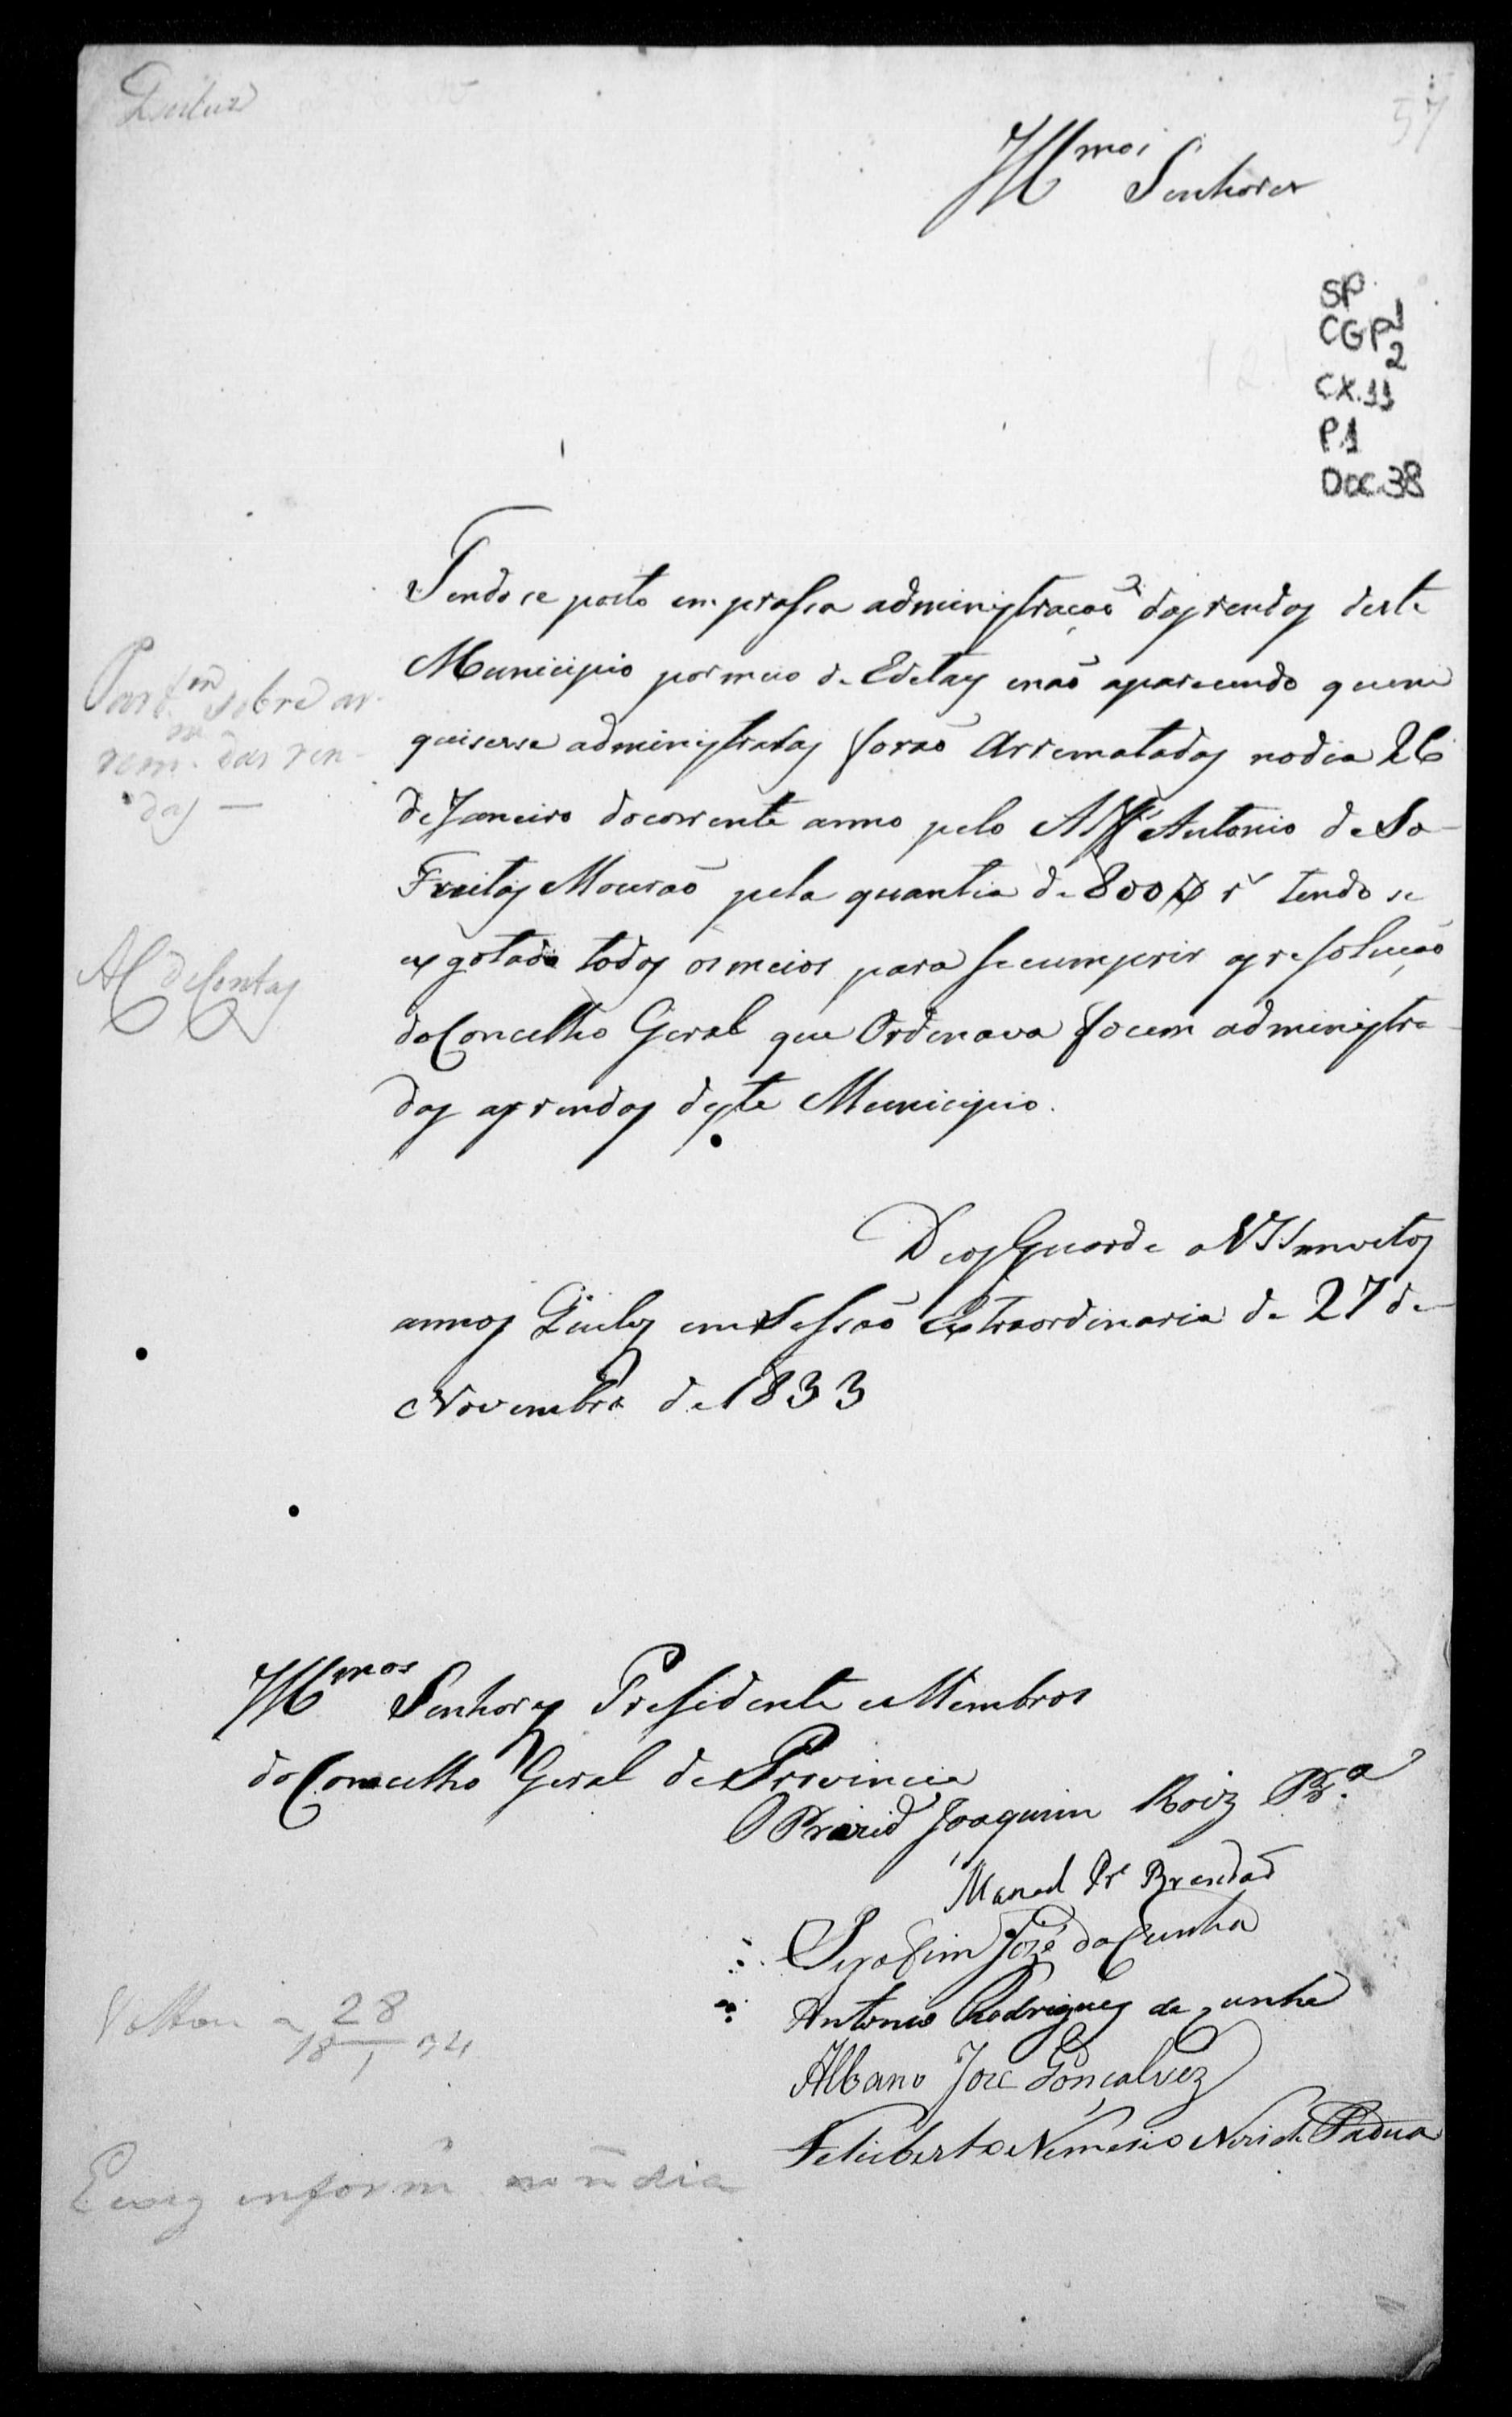 Queluz
57
Illmos Senhores
SP
CGP 1
2
CX. 11
P1
DOC. 38
Tendose posto em prassa administração dasrendas deste
Municipio pormeio de Edetaes enaõ aparecendo quem
quisesse administralas foraõ Arrematadas nodia 26
de Janeiro docorrente anno pelo Alfs Antonio de Sa
Freitas Mouraõ pela quantia de 800$ rs tendo se
esgotado todos osmeios para secumprir aresoluçaõ
doConcelho Geral que Ordenava focem administra
das asrendas deste Municipio.
Partm sobre ar-
rem.m das ren-
das —
AC de Contas
Deos Guarde a VSSmuitos
annos Queluz emSessaõ Extraordinaria de 27 de
Novembro de 1833
Illmos Senhores Presidente eMembros
doConcelho Geral deProvincia
O Prezid Joaquim Roiz Pra
Manoel Pr Brandaõ
Serafim José daCunha
Antonio Rodrigues da Cunha
Albano Jose Gonçalvez
Feliberto Nemesio Neri de Padua
Voltou a 28
18 1 34
inform